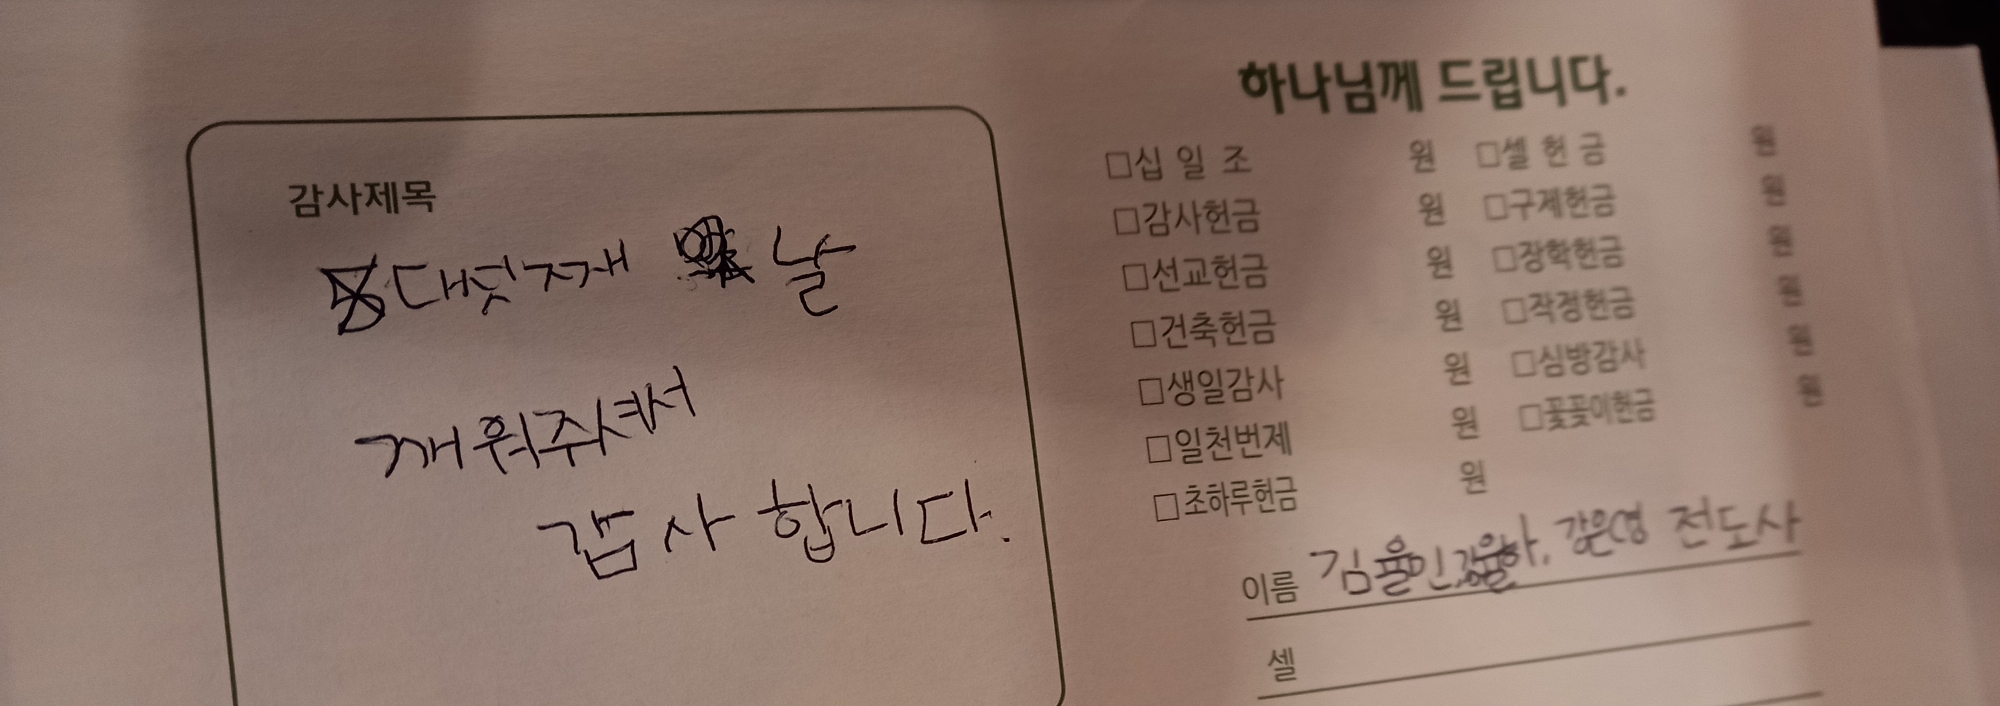 하나님께 드립니다.
감사제목
대섯째 날
깨워주셔서
감사합니다.
□십 일 조 원 □셀 헌 금 원
□감사헌금 원 □구제헌금 원
□선교헌금 원 □장학헌금 원
□건축헌금 원 □작정헌금 원
□생일감사 원 □심방감사 원
□일천번제 원 □꽃꽂이헌금 원
□초하루헌금 원
이름 김율인, 김율하, 강은영 전도사
셀